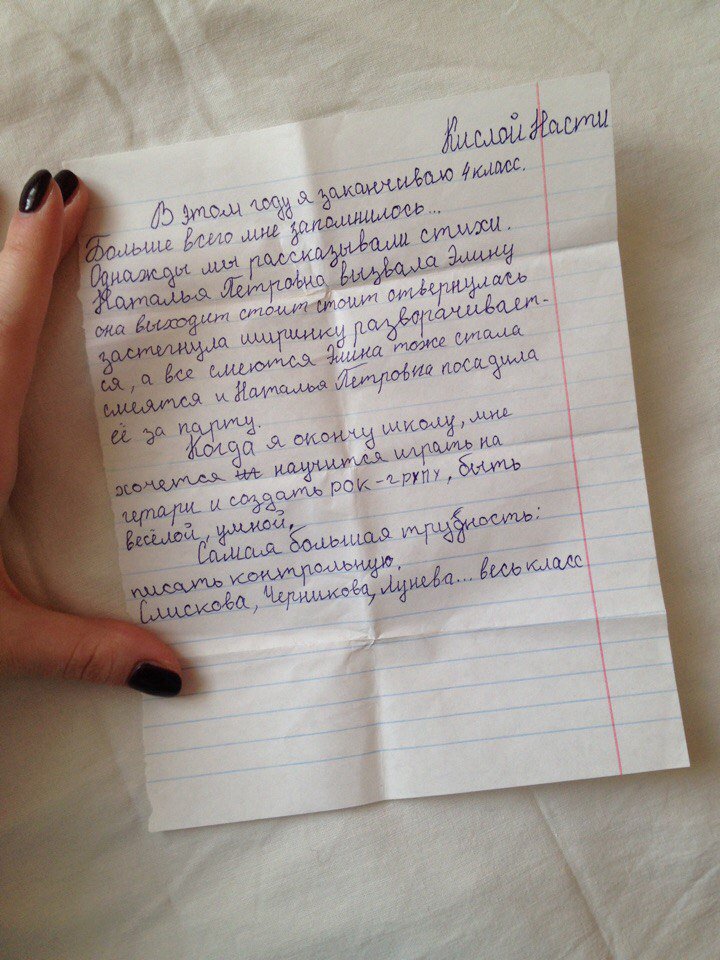 Кислой Насти
В этом году я заканчиваю 4 класс.
Больше всего мне запомнилось...
Однажды мы рассказывали стихи.
Наталья Петровна вызвала Элину
она выходит стоит стоит отвернулась
застегнула ширинку разворачивает-
ся, а все смеются Элина тоже стала
смеятся и Наталья Петровна посадила
её за парту.
Когда я окончу школу, мне
хочется научится играть на
гетари и создать рок-групу, быть
весёлой, умной.
Самая большая трудность:
писать контрольную.
Слискова, Черникова, Лунева... весь класс